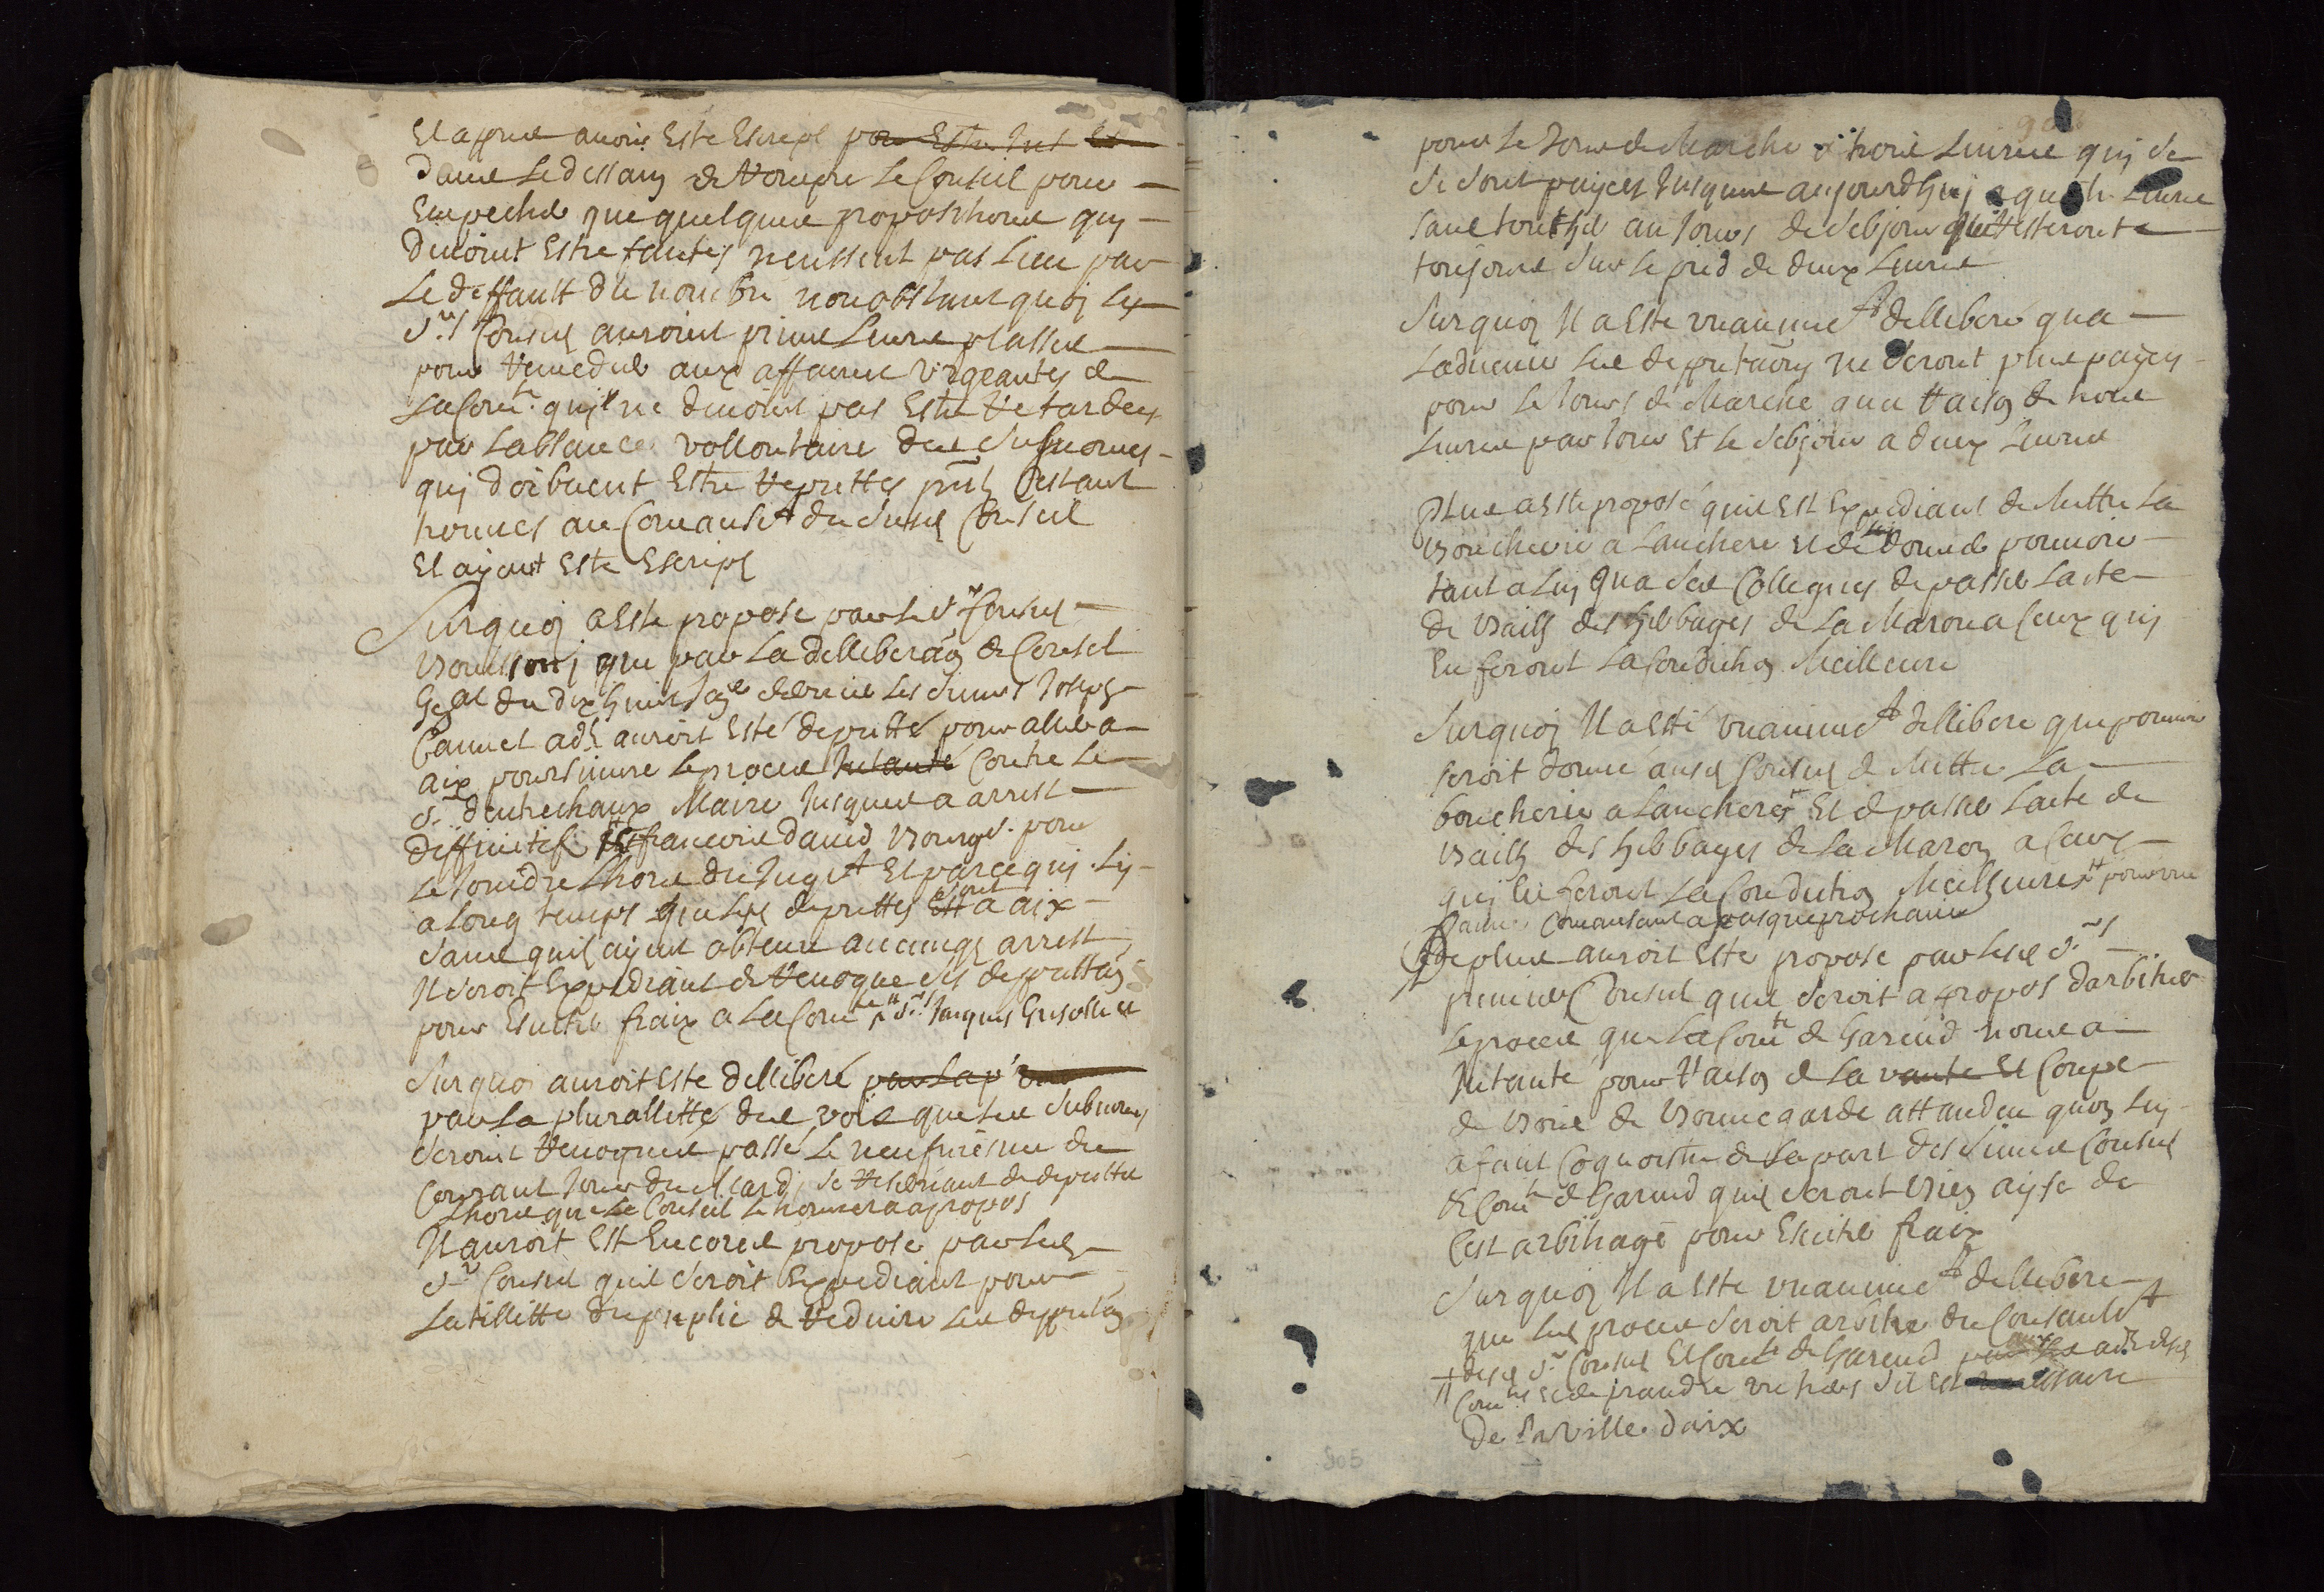 Et appres avoir Esté Escript pour Estre lut Et
Dans Le dessain de Rompre Le Conseil pour
Empecher que quelques propositions quy
devoint Estre faites neussent pas Lieu par
Le deffault du nombre nonobstant quoy Les
Srs Consuls auroint prins Leurs plasses
pour Remedier aux affaires Urgeantes de
La Comte quy ne devoint pas Estre Retardees
par Labsance vollontaire des susnomes
quy doibvent Estre Reputtes pnts sestant
trouves au Comansemt du susd Conseil
Et ayant Esté Escript
Surquoy a Esté proposé par Le Sr Consul
que par La delliberaon de Consel
Gnal du dix huict les sieurs Joseph
advt auroit Esté deputté pour aller a
aix poursuivre Le proces Intanté Contre Le
Sr dentrechaux Maire Jusques a arrest
diffinitif francois david bourgs. pour
Le Joindre Lhors du Jugemt Et parce quil y
a Long temps que Lesd deputtes Est sont a aix
sans quils ayent obtenu aucungs arrest
Il seroit Expediant de Revoque ses deputtaon
pour Esviter fraix a La Comte Jacques
Surquoy auroit Esté delliberé par La
par La plurallitté des voix que Les subnomes
seroint Revoques passé Le neufviesme du
Courant Jour du Mardi se Reservant de deputter
Lhors que Le Conseil Le trouvera a propos
Il auroit Esté Encores proposé par Led
Sr Consul quil seroit Expediant pour
Lutillitté du puplic de Reduire Les deputaon
pour Le Jour de Marche a trois Livres quy se
se sont payees Jusques aujourdhuy a quatre Livres
sans toucher au Jours de sebjour quil Resteront
toujours sur Le pied de deux Livres
Surquoy Il a Esté unanimemt delliberé qua
Ladvenir Les deputaons ne seront plus payees
pour Le Jours de Marche qua Raison de trois
Livres par Jour Et Le sebjour a deux Livres
Plus a Esté proposé quil Est Expediant de Mettre La
boucherie a Lanchere Et de Leur donner pouvoir
tant a Luy qua ses Collegues de passer Lacte
de bailh des herbages de La Marone a Ceux quy
En feront La Condition Meilleure
Surquoy Il a Esté unanimemt delliberé que pouvoir
seroit donné ausd Consuls de Mettre La
boucherie a Lanchere Et de passer Lacte de
bailh des herbages de La Maron a Ceux
quy En feront La Condition Meilheure pour une
Comansant a pasques prochain
De plus auroit Esté proposé par Lesd Srs
premier Consul quil seroit a propos darbitrer
Le proces que La Comte de Gareud nous a
Intanté pour Raison de La vante Et Coupe
de bois de bonnegarde attandeu quon Luy
a fait Cognoistre de La part des sieurs Consuls
de Comte de Gareud quils seront bien aysse de
Cest arbitrage pour Esviter fraix
Surquoy Il a Esté unanimemt delliberé
que Led proces seroit arbitré du Consantemt
desd Srs Consuls Et Comte de Gareud
Comtes Et de prandre un tiers sil Est nessaire
De La Ville daix